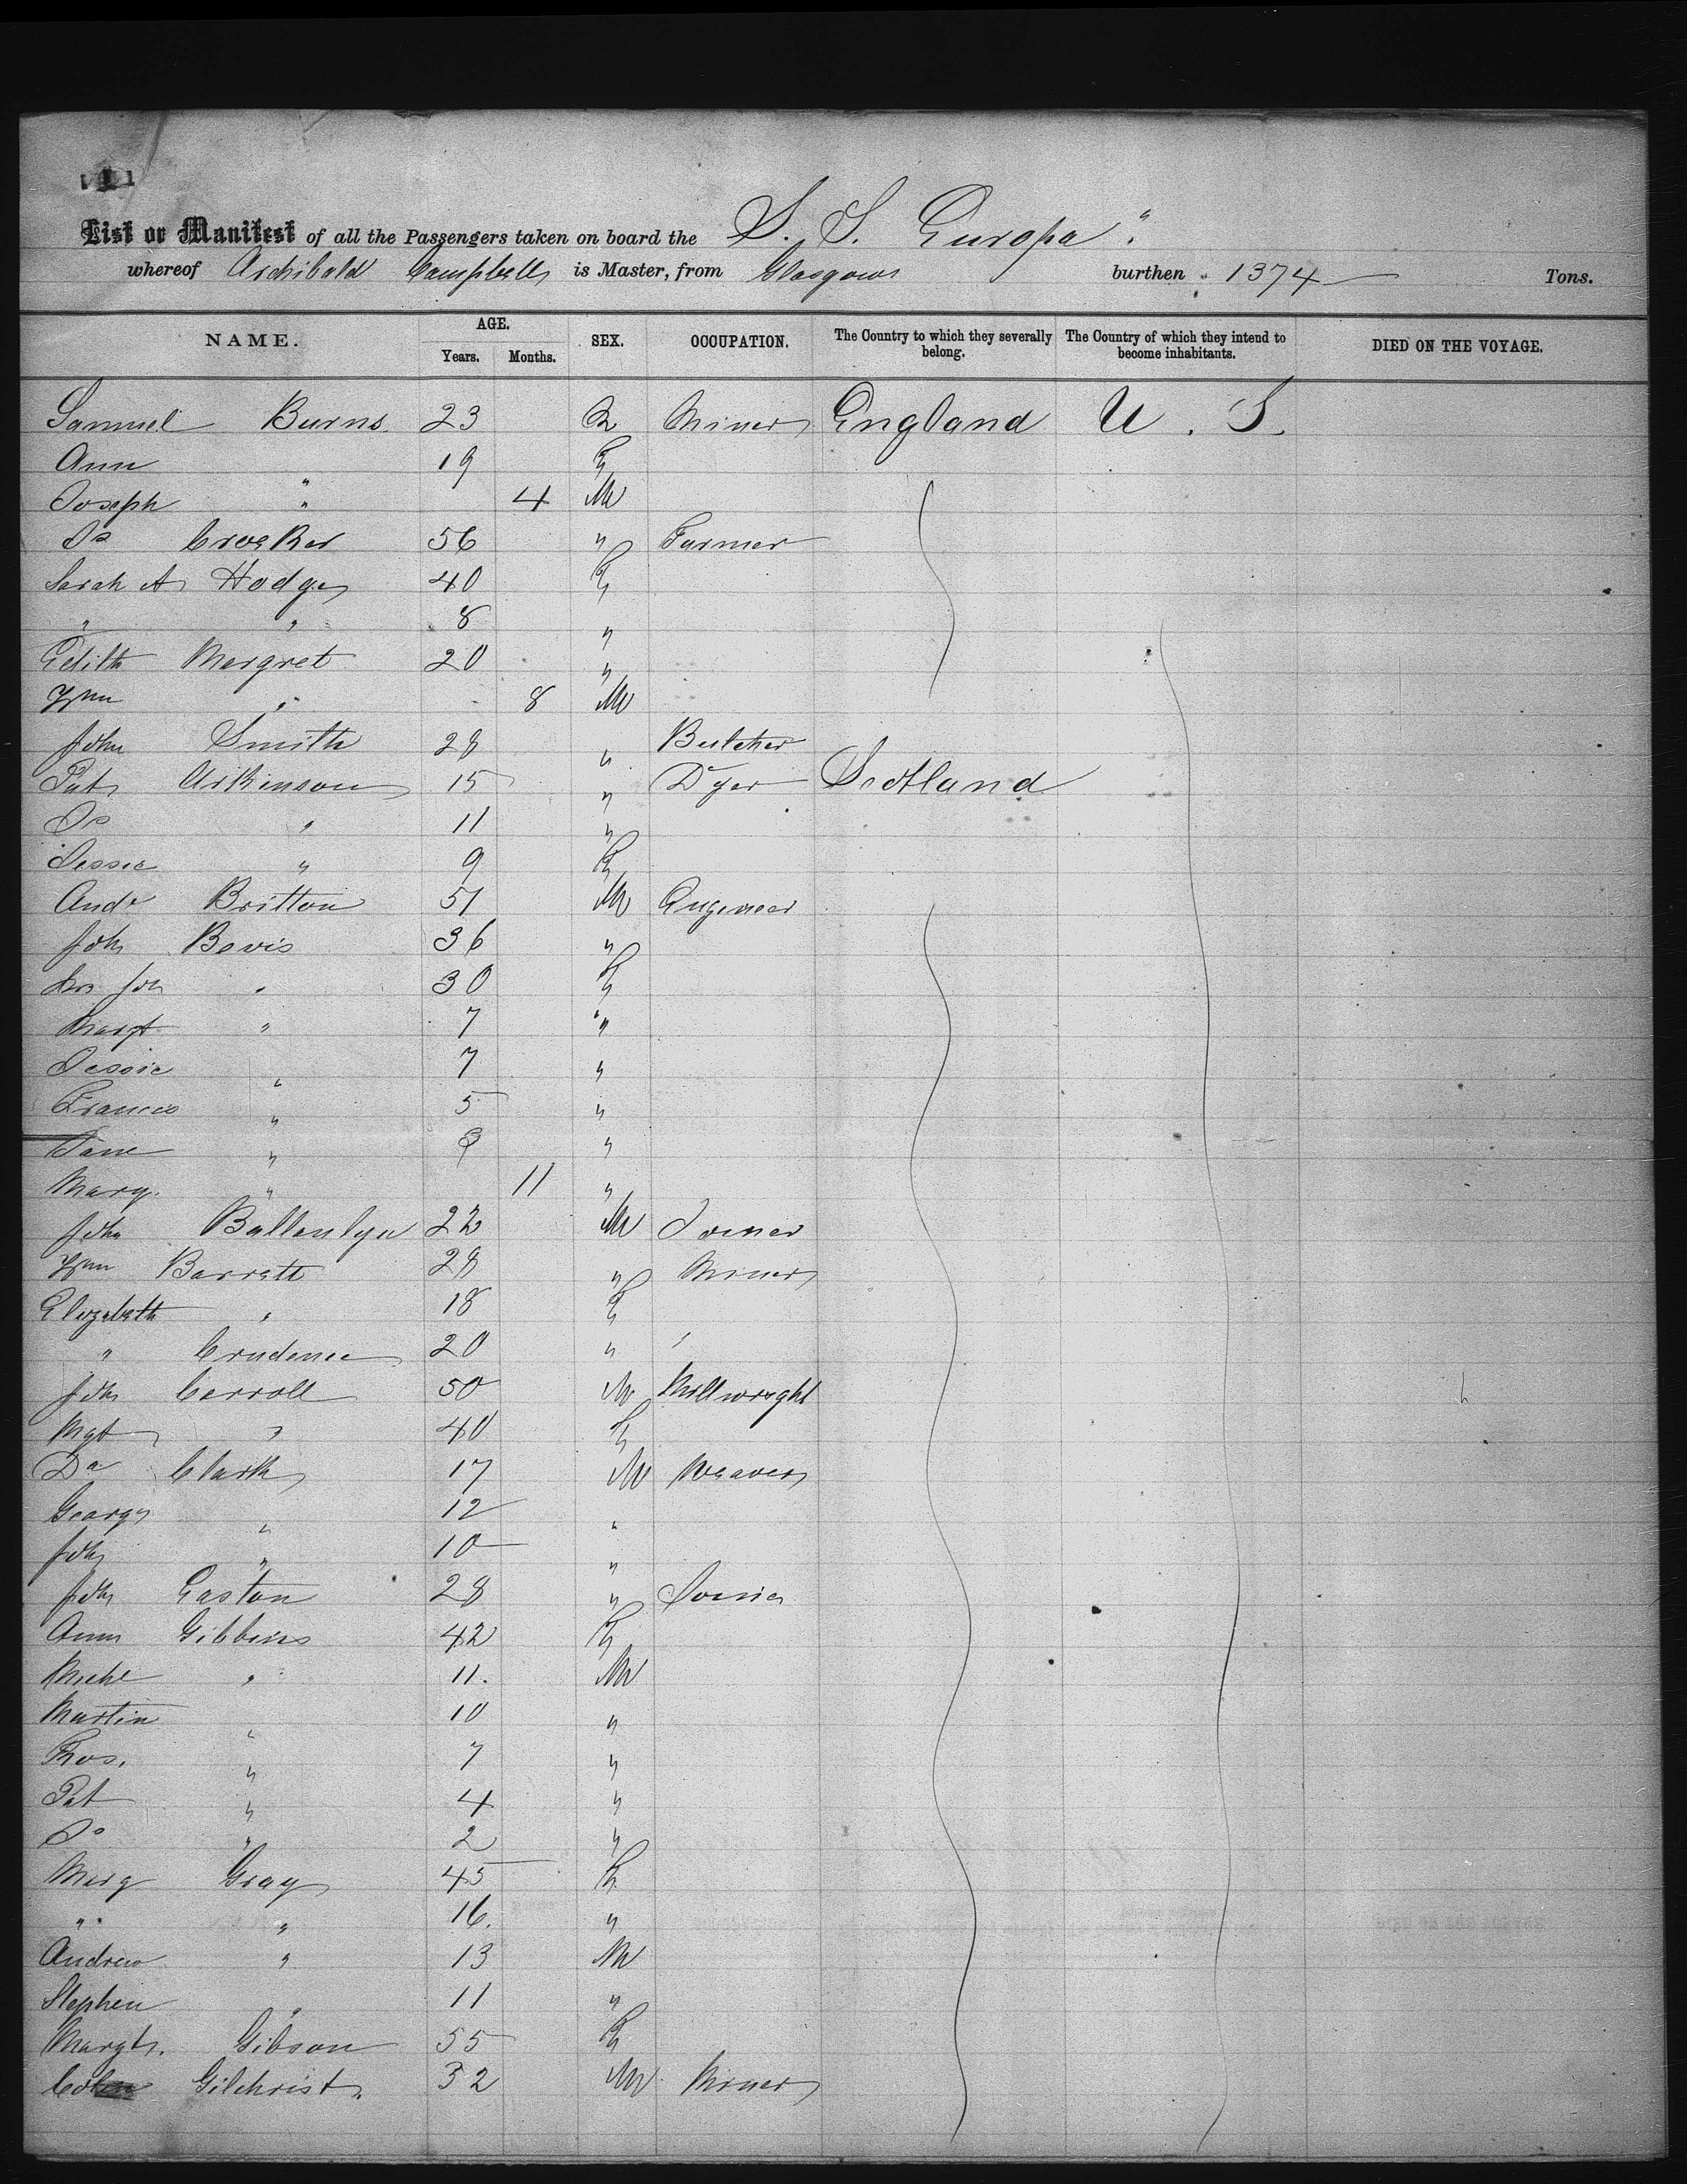 List or Manifest of all the Passengers taken on board the S. S. Europa "
whereof Archibald Campbell is Master, from Glasgow burthen 1374 Tons.
NAME. AGE. Years. Months. SEX. OCCUPATION. The Country to which they severally belong. The Country of which they intend to become inhabitants. DIED ON THE VOYAGE.
Samuel Burns 23 Miner England U. S.
Ann " 19 F
Joseph " 4 M
Js Crocker 56 " Farmer
Sarah A Hodge 40 F
" " 8 "
Edith Margret 20 "
Wm " 8 M
John Smith 28 " Butcher
Pat Aikinson 15 " Dyer Scotland
Js " 11 "
Jessie " 9 F
Andw Britton 51 M Engineer
Joh Bevis 36 "
Mrs Joh " 30 F
Margt " 7 "
Jessie " 7 "
Francis " 5 "
Jane " "
Marg. " 11 "
John Ballantyn 22 M Joiner
Wm Barrett 28 " Miner
Elizabeth " 18 F
" Crudence 20 "
Joh Carroll 50 M Millwright
Mgt " 40 F
Da Clark 17 M Weaver
George " 12 "
Joh " 10 "
Joh Gaston 28 " Joiner
Ann Gibbins 42 F
Michl " 11. M
Martin " 10 "
Thos. " 7 "
Pat " 4 "
Js " 2 "
Marg Gray 45 F
" " 16. "
Andrew " 13 M
Stephen " 11 "
Margt. Gibson 55 F
Gilchrist 32 M Miner